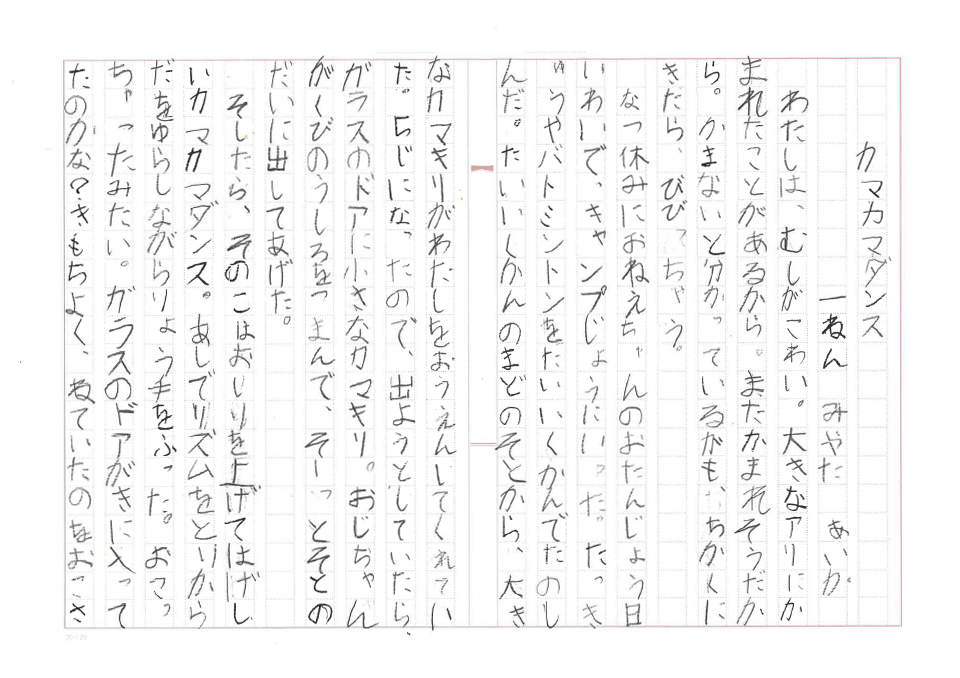 カマカマダンス
一ねん みやた あいか
わたしは、むしがこわい。大きなアリにか
まれたことがあるから。またかまれそうだか
ら。かまないと分かっているがも、ちかくに
きたら、びびっちゃう。
なつ休みにおねえちゃんのおたんじょう日
いわいで、キャンプじょうにいった。たっき
ゅうやバトミントンをたいいくかんでたのし
んだ。たいいくかんのまどのそとから、大き
なカマキリがわたしをおうえんしてくれてい
た。5じになったので、出ようとしていたら、
ガラスのドアに小さなカマキリ。おじちゃん
がくびのうしろをつまんで、そーっとそとの
だいに出してあげた。
そしたら、そのこはおしりを上げてはげし
いカマカマダンス。あしでリズムをとりから
だをゆらしながらりょう手をふった。おこっ
ちゃったみたい。ガラスのドアがきに入って
たのかな？きもちよく、ねていたのをおこさ
20×20